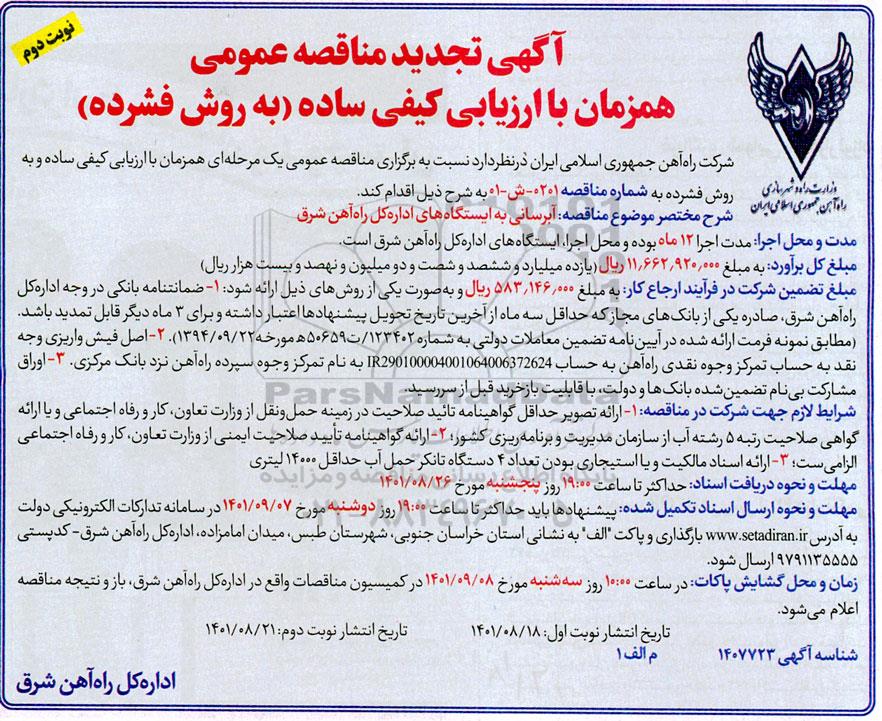 نوبت دوم
آگهی تجدید مناقصه عمومی
همزمان با ارزیابی کیفی ساده (به روش فشرده)
وزارت راه و شهرسازی
راه‌آهن جمهوری اسلامی ایران
شرکت راه‌آهن جمهوری اسلامی ایران درنظردارد نسبت به برگزاری مناقصه عمومی یک مرحله‌ای همزمان با ارزیابی کیفی ساده و به
روش فشرده به شماره مناقصه ۰۲۰۱-ش-۰۱ به شرح ذیل اقدام کند.
شرح مختصر موضوع مناقصه: آبرسانی به ایستگاه‌های اداره‌کل راه‌آهن شرق
مدت و محل اجرا: مدت اجرا ۱۲ ماه بوده و محل اجرا، ایستگاه‌های اداره‌کل راه‌آهن شرق است.
مبلغ کل برآورد: به مبلغ ۱۱٫۶۶۲٫۹۲۰٫۰۰۰ ریال (یازده میلیارد و ششصد و شصت و دو میلیون و نهصد و بیست هزار ریال)
مبلغ تضمین شرکت در فرآیند ارجاع کار: به مبلغ ۵۸۳٫۱۴۶٫۰۰۰ ریال و به‌صورت یکی از روش‌های ذیل ارائه شود: ۱- ضمانتنامه بانکی در وجه اداره‌کل
راه‌آهن شرق، صادره یکی از بانک‌های مجاز که حداقل سه ماه از آخرین تاریخ تحویل پیشنهادها اعتبار داشته و برای ۳ ماه دیگر قابل تمدید باشد.
(مطابق نمونه فرمت ارائه شده در آیین‌نامه تضمین معاملات دولتی به شماره ۱۲۳۴۰۲/ت۵۰۶۵۹ه‍ مورخه ۱۳۹۴/۰۹/۲۲). ۲- اصل فیش واریزی وجه
نقد به حساب تمرکز وجوه نقدی راه‌آهن به حساب IR290100004001064006372624 به نام تمرکز وجوه سپرده راه‌آهن نزد بانک مرکزی. ۳- اوراق
مشارکت بی‌نام تضمین‌شده بانک‌ها و دولت، با قابلیت بازخرید قبل از سررسید.
شرایط لازم جهت شرکت در مناقصه: ۱- ارائه تصویر حداقل گواهینامه تائید صلاحیت در زمینه حمل‌ونقل از وزارت تعاون، کار و رفاه اجتماعی و یا ارائه
گواهی صلاحیت رتبه ۵ رشته آب از سازمان مدیریت و برنامه‌ریزی کشور؛ ۲- ارائه گواهینامه تأیید صلاحیت ایمنی از وزارت تعاون، کار و رفاه اجتماعی
الزامی‌ست؛ ۳- ارائه اسناد مالکیت و یا استیجاری بودن تعداد ۴ دستگاه تانکر حمل آب حداقل ۱۴۰۰۰ لیتری
مهلت و نحوه دریافت اسناد: حداکثر تا ساعت ۱۹:۰۰ روز پنجشنبه مورخ ۱۴۰۱/۰۸/۲۶
مهلت و نحوه ارسال اسناد تکمیل شده: پیشنهادها باید حداکثر تا ساعت ۱۹:۰۰ روز دوشنبه مورخ ۱۴۰۱/۰۹/۰۷ در سامانه تدارکات الکترونیکی دولت
به آدرس www.setadiran.ir بارگذاری و پاکت "الف" به نشانی استان خراسان جنوبی، شهرستان طبس، میدان امامزاده، اداره‌کل راه‌آهن شرق- کدپستی
۹۷۹۱۱۳۵۵۵۵ ارسال شود.
زمان و محل گشایش پاکات: در ساعت ۱۰:۰۰ روز سه‌شنبه مورخ ۱۴۰۱/۰۹/۰۸ در کمیسیون مناقصات واقع در اداره‌کل راه‌آهن شرق، باز و نتیجه مناقصه
اعلام می‌شود.
تاریخ انتشار نوبت اول: ۱۴۰۱/۰۸/۱۸ تاریخ انتشار نوبت دوم: ۱۴۰۱/۰۸/۲۱
شناسه آگهی ۱۴۰۷۷۲۳ م الف ۱
اداره‌کل راه‌آهن شرق
ParsNamadData